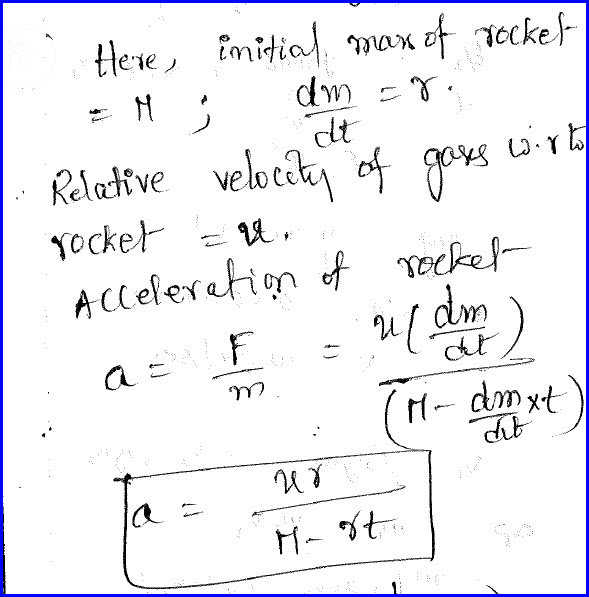 Here, initial mass of rocket
= M ; dm/dt = r.
Relative velocity of gases w.r to
rocket = u.
Acceleration of rocket
a = F/m = u(dm/dt)/(M - dm/dt x t)
a = ur/(M - rt)